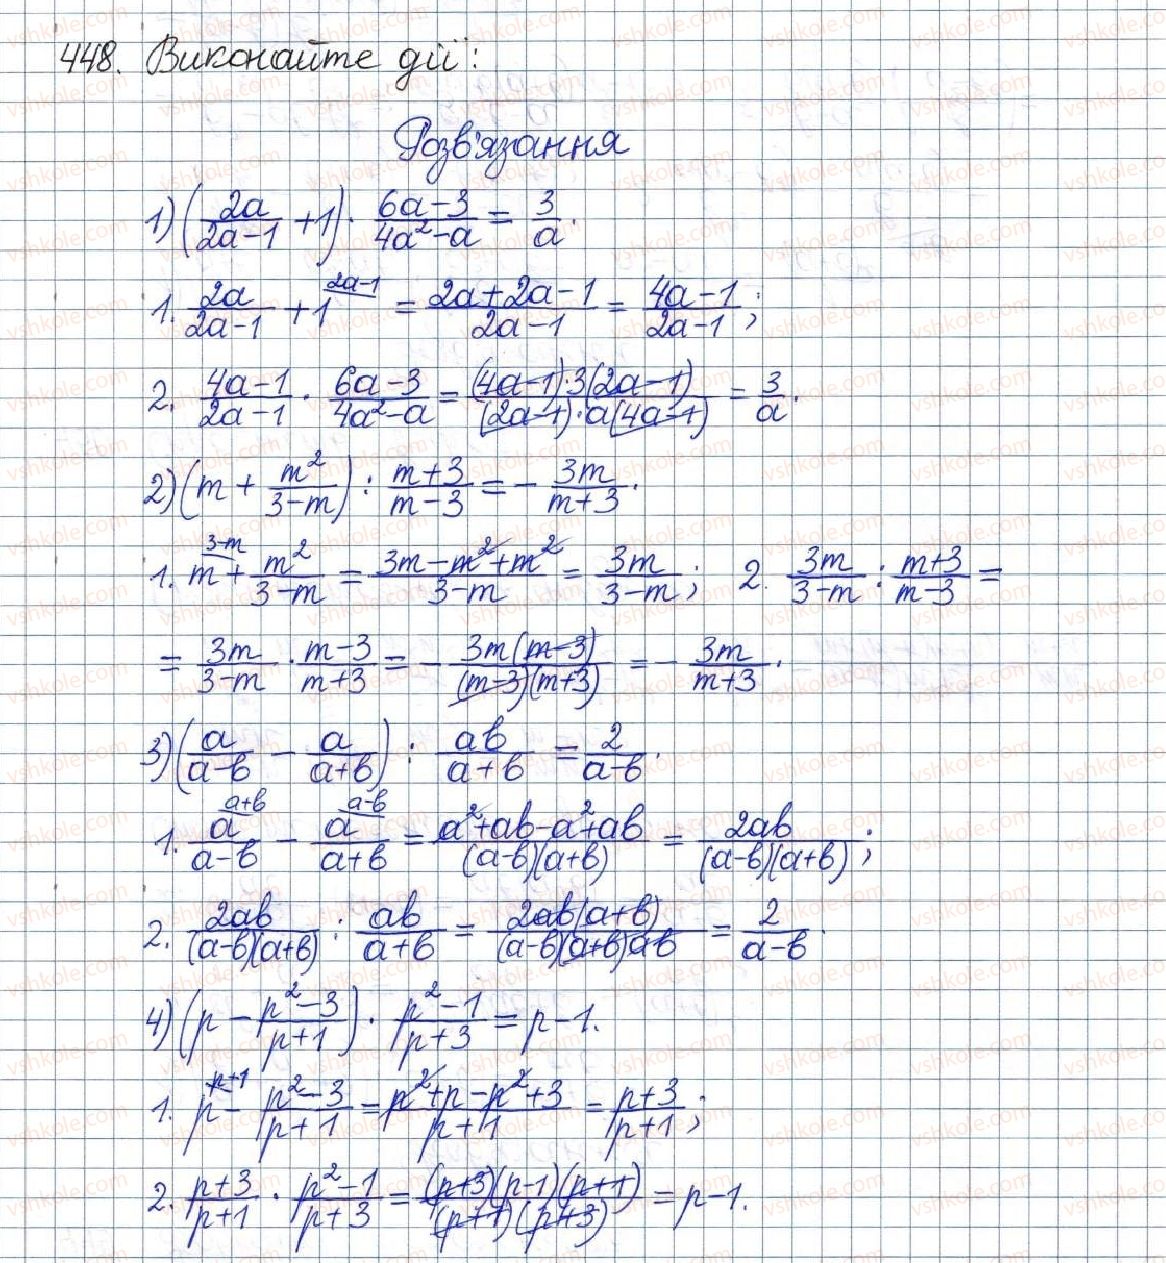 448. Виконайте дії:
Розв'язання
1) (2a/(2a-1) + 1) · (6a-3)/(4a²-a) = 3/a.
1. 2a/(2a-1) + 1^(2a-1) = (2a+2a-1)/(2a-1) = (4a-1)/(2a-1);
2. (4a-1)/(2a-1) · (6a-3)/(4a²-a) = ((4a-1)·3(2a-1))/((2a-1)·a(4a-1)) = 3/a.
2) (m + m²/(3-m)) : (m+3)/(m-3) = - 3m/(m+3).
1. m^(3-m) + m²/(3-m) = (3m-m²+m²)/(3-m) = 3m/(3-m); 2. 3m/(3-m) : (m+3)/(m-3) =
= 3m/(3-m) · (m-3)/(m+3) = - (3m(m-3))/((m-3)(m+3)) = - 3m/(m+3).
3) (a/(a-b) - a/(a+b)) : ab/(a+b) = 2/(a-b).
1. a^(a+b)/(a-b) - a^(a-b)/(a+b) = (a²+ab-a²+ab)/((a-b)(a+b)) = 2ab/((a-b)(a+b));
2. 2ab/((a-b)(a+b)) : ab/(a+b) = (2ab(a+b))/((a-b)(a+b)ab) = 2/(a-b).
4) (p - (p²-3)/(p+1)) · (p²-1)/(p+3) = p-1.
1. p^(p+1) - (p²-3)/(p+1) = (p²+p-p²+3)/(p+1) = (p+3)/(p+1);
2. (p+3)/(p+1) · (p²-1)/(p+3) = ((p+3)(p-1)(p+1))/((p+1)(p+3)) = p-1.
vshkole.com